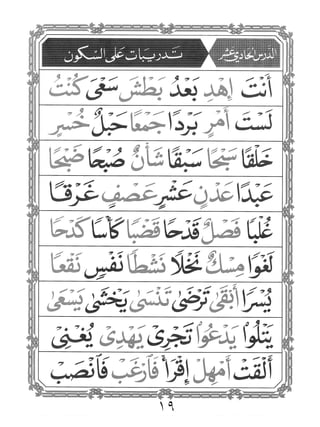 الدرس الحادي عشر تدريبات على السكون
أَنْتَ إِهْدِ بَعْدُ بَطْشَ سَعْىَ كُنْتُ
لَسْتَ أَمْرٍ بَرْدًا جَمْعًا حَبْلٌ خُسْرٍ
خَلْقًا سَبْحًا سَبْقًا شَأْنٌ صُبْحًا ضَبْحًا
عَبْدًا عَدْنٍ عَشْرٍ عَصْفٍ غَرْقًا
غُلْبًا فَصْلٌ قَدْحًا قَضْبًا كَأْسًا كَدْحًا
لَغْوًا مِسْكٌ نَخْلًا نَشْطًا نَفْسٍ نَقْعًا
يُسْرًا أَبْقَىٰ تَرْضَىٰ تَنْسَىٰ يَخْشَىٰ يَسْعَىٰ
يَتْلُوا۟ يَدْعُوا۟ تَجْرِى يَهْدِى يُغْنِى
أَلْقَتْ أَمْهِلْ إِقْرَأْ فَٱرْغَبْ فَٱنْصَبْ
١٩